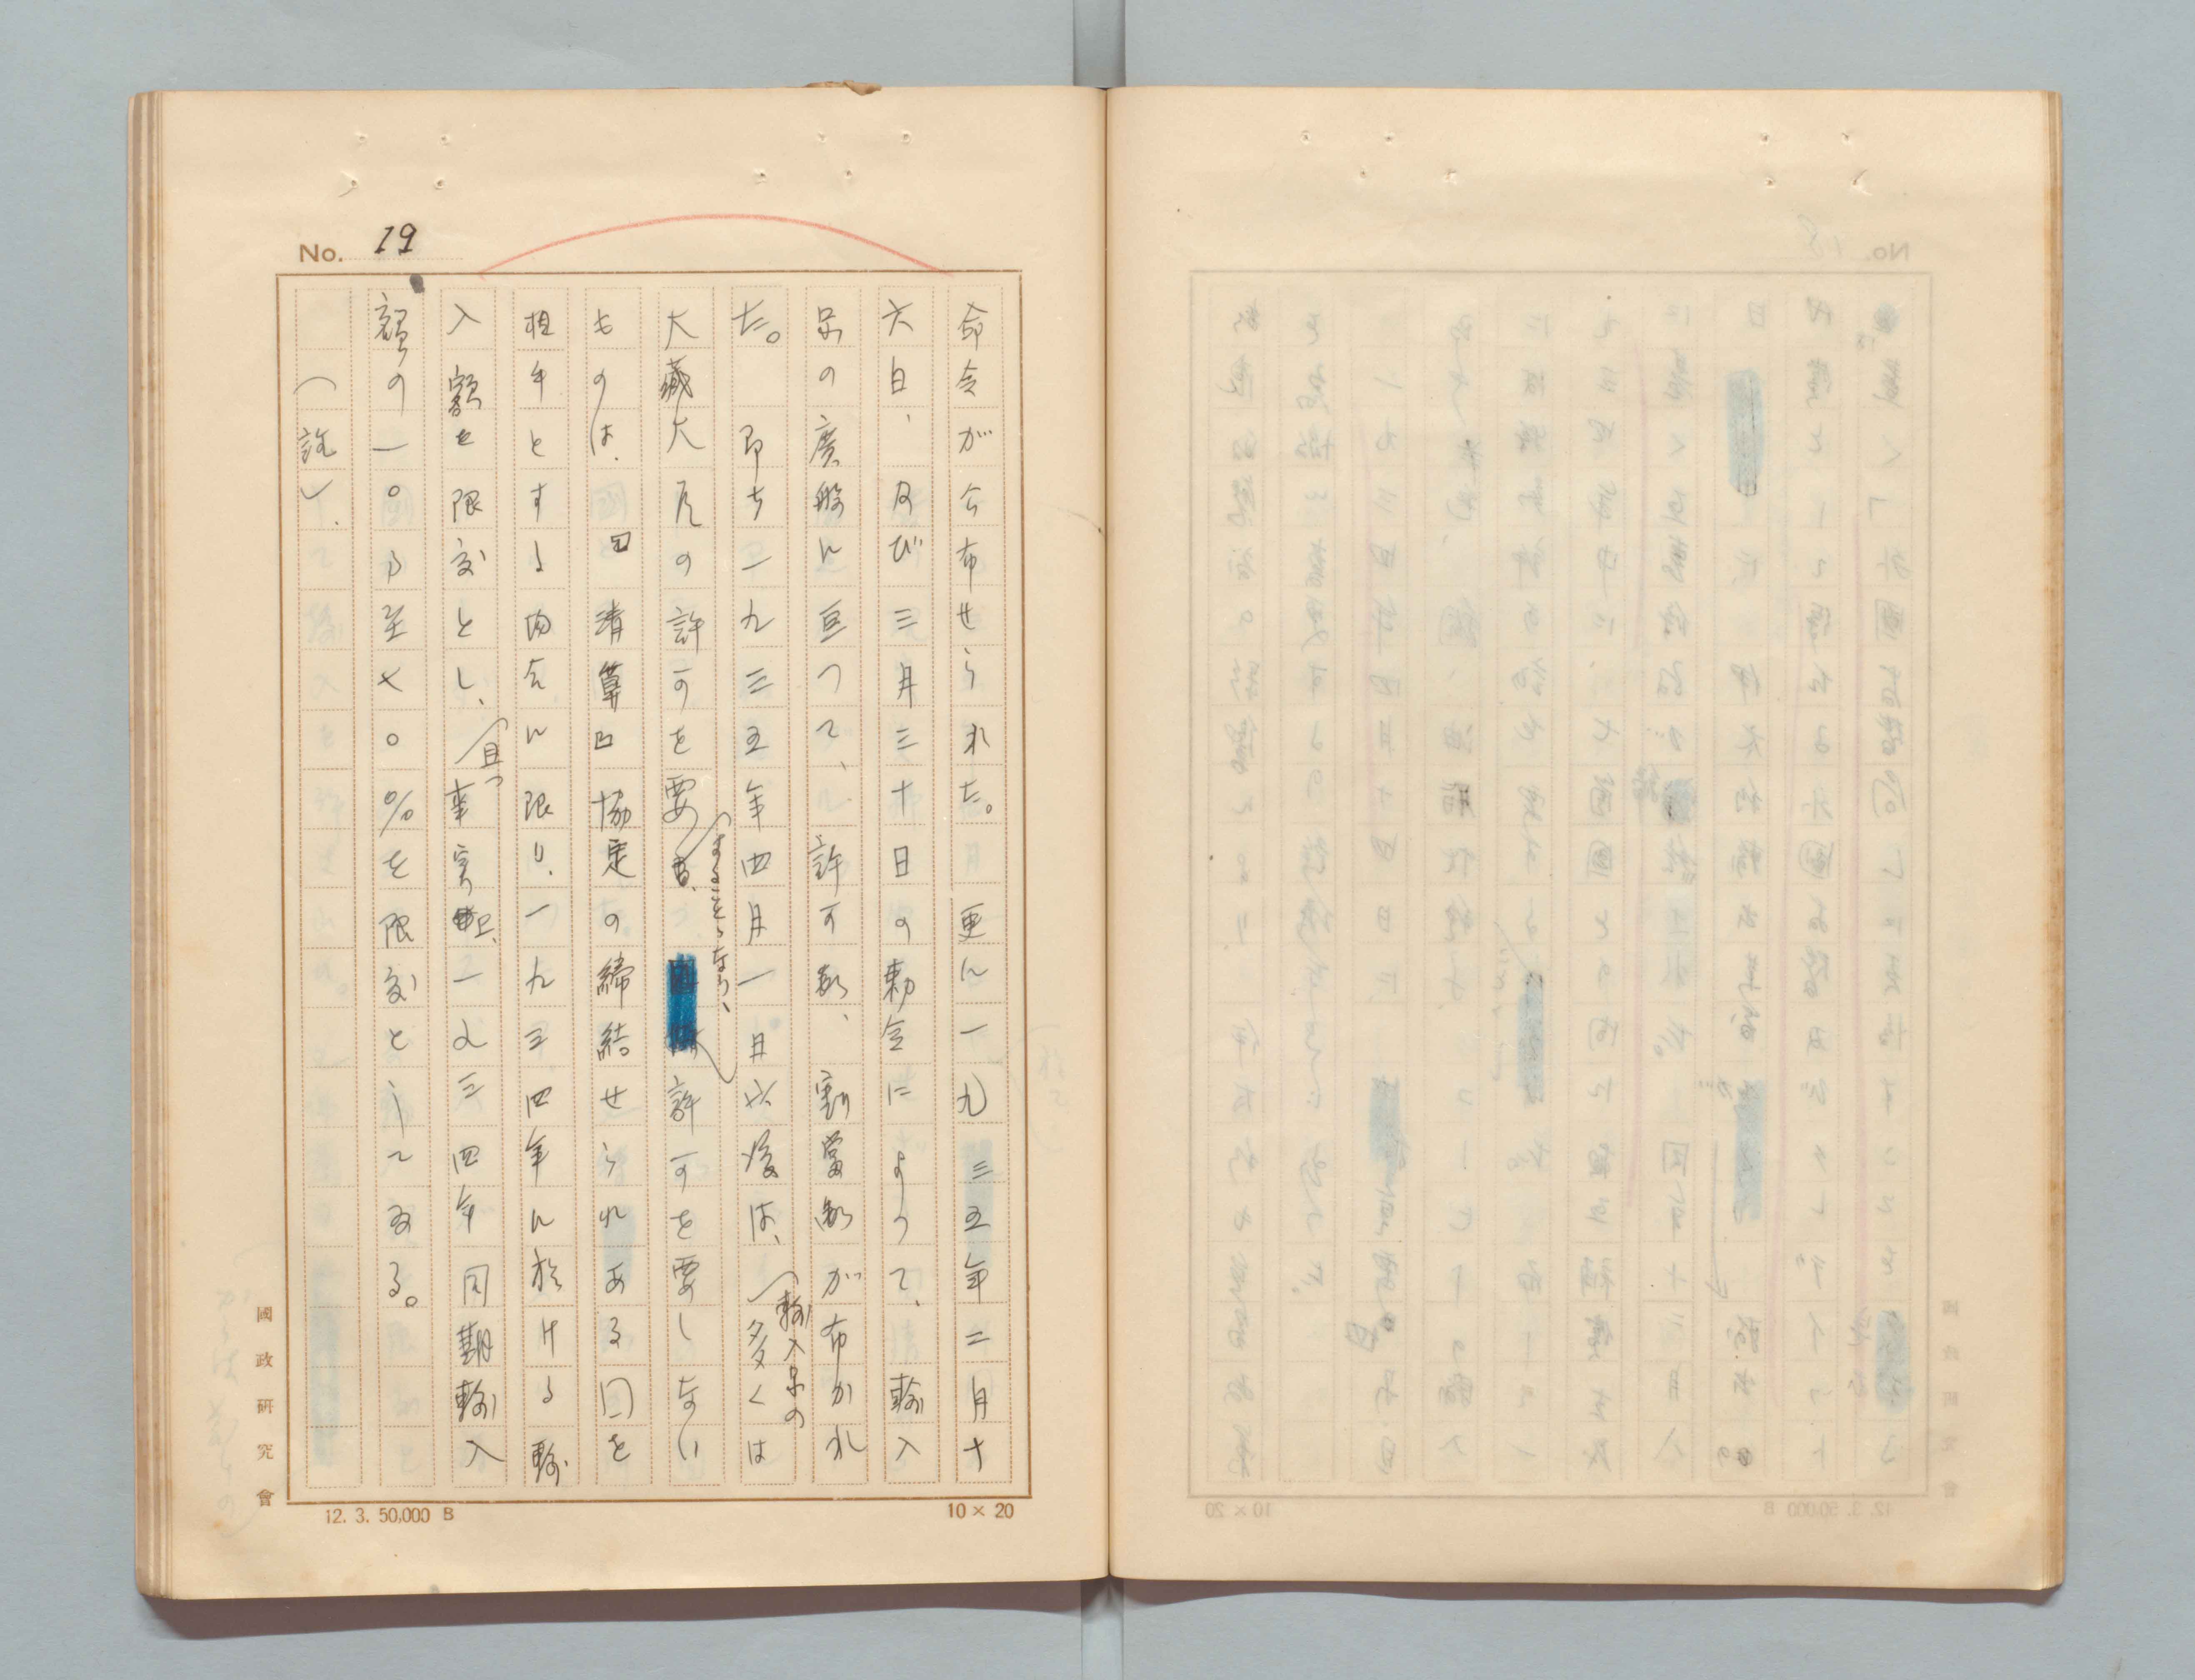 No. 19
命令が公布せられた。更に一九三五年二月十
六日、及び三月三十日の勅令によつて、輸入
品の廣般に亘つて、許可制、割當制が布かれ
た。 即ち一九三五年四月一日以後は、輸入品の多くは
大藏大臣の許可を要することゝなり、許可を要しない
ものは、清算協定の締結せられある国を
相手とする場合に限り、一九三四年に於ける輸
入額を限度とし、且つ事実上、一九三四年同期輸入
額の一〇乃至七〇%を限度としてゐる。
(註)、
國政研究會
12. 3. 50,000 B
10 × 20